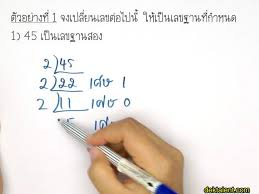 ตัวอย่างที่ 1 จงเปลี่ยนเลขต่อไปนี้ ให้เป็นเลขฐานที่กำหนด
1) 45 เป็นเลขฐานสอง
2)45
2)22 เศษ 1
2)11 เศษ 0
5 เศษ
dektalent.com